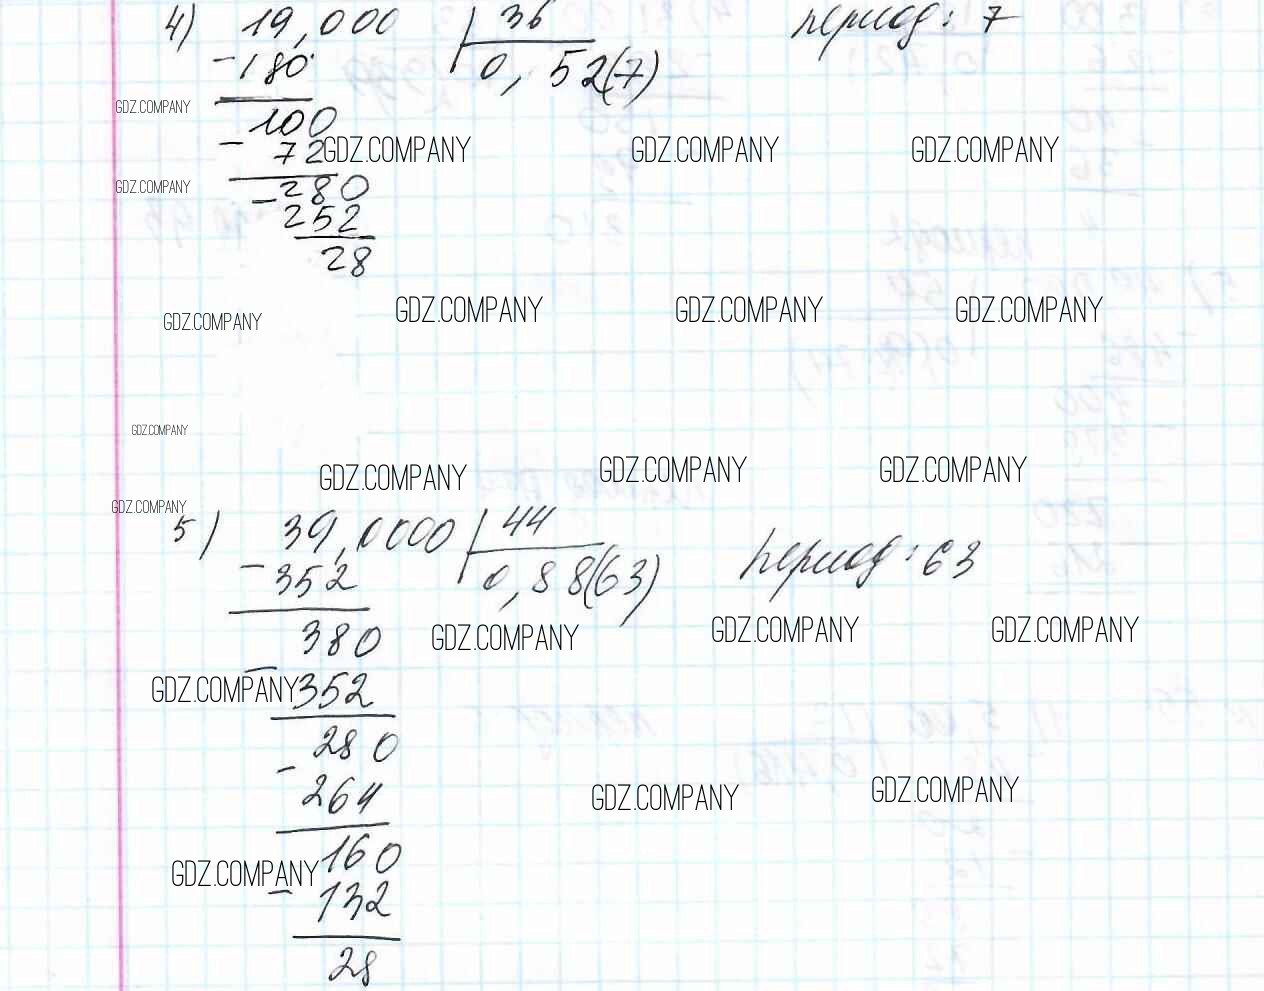 4) 19,000 36 период: 7
-180 0,52(7)
GDZ.COMPANY
100
- 72 GDZ.COMPANY GDZ.COMPANY GDZ.COMPANY
GDZ.COMPANY
-280
252
28
GDZ.COMPANY GDZ.COMPANY GDZ.COMPANY
GDZ.COMPANY
GDZ.COMPANY
GDZ.COMPANY GDZ.COMPANY GDZ.COMPANY
GDZ.COMPANY
5) 39,0000 44 период: 63
-352 0,88(63)
380
GDZ.COMPANY GDZ.COMPANY GDZ.COMPANY
GDZ.COMPANY
-352
280
-
264
GDZ.COMPANY GDZ.COMPANY
160
GDZ.COMPANY
-132
28